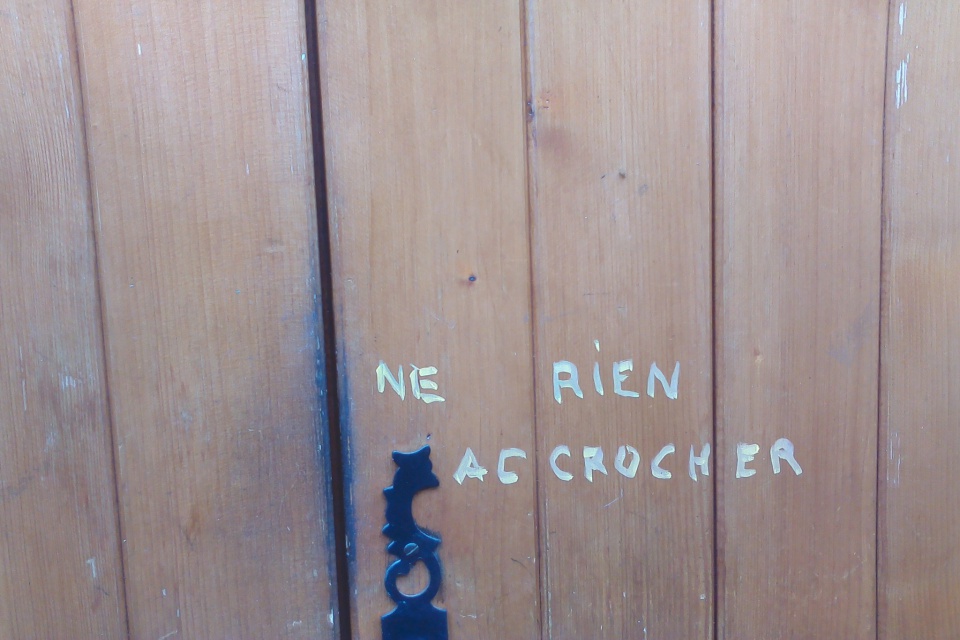 NE RiEN
ACCROCHER